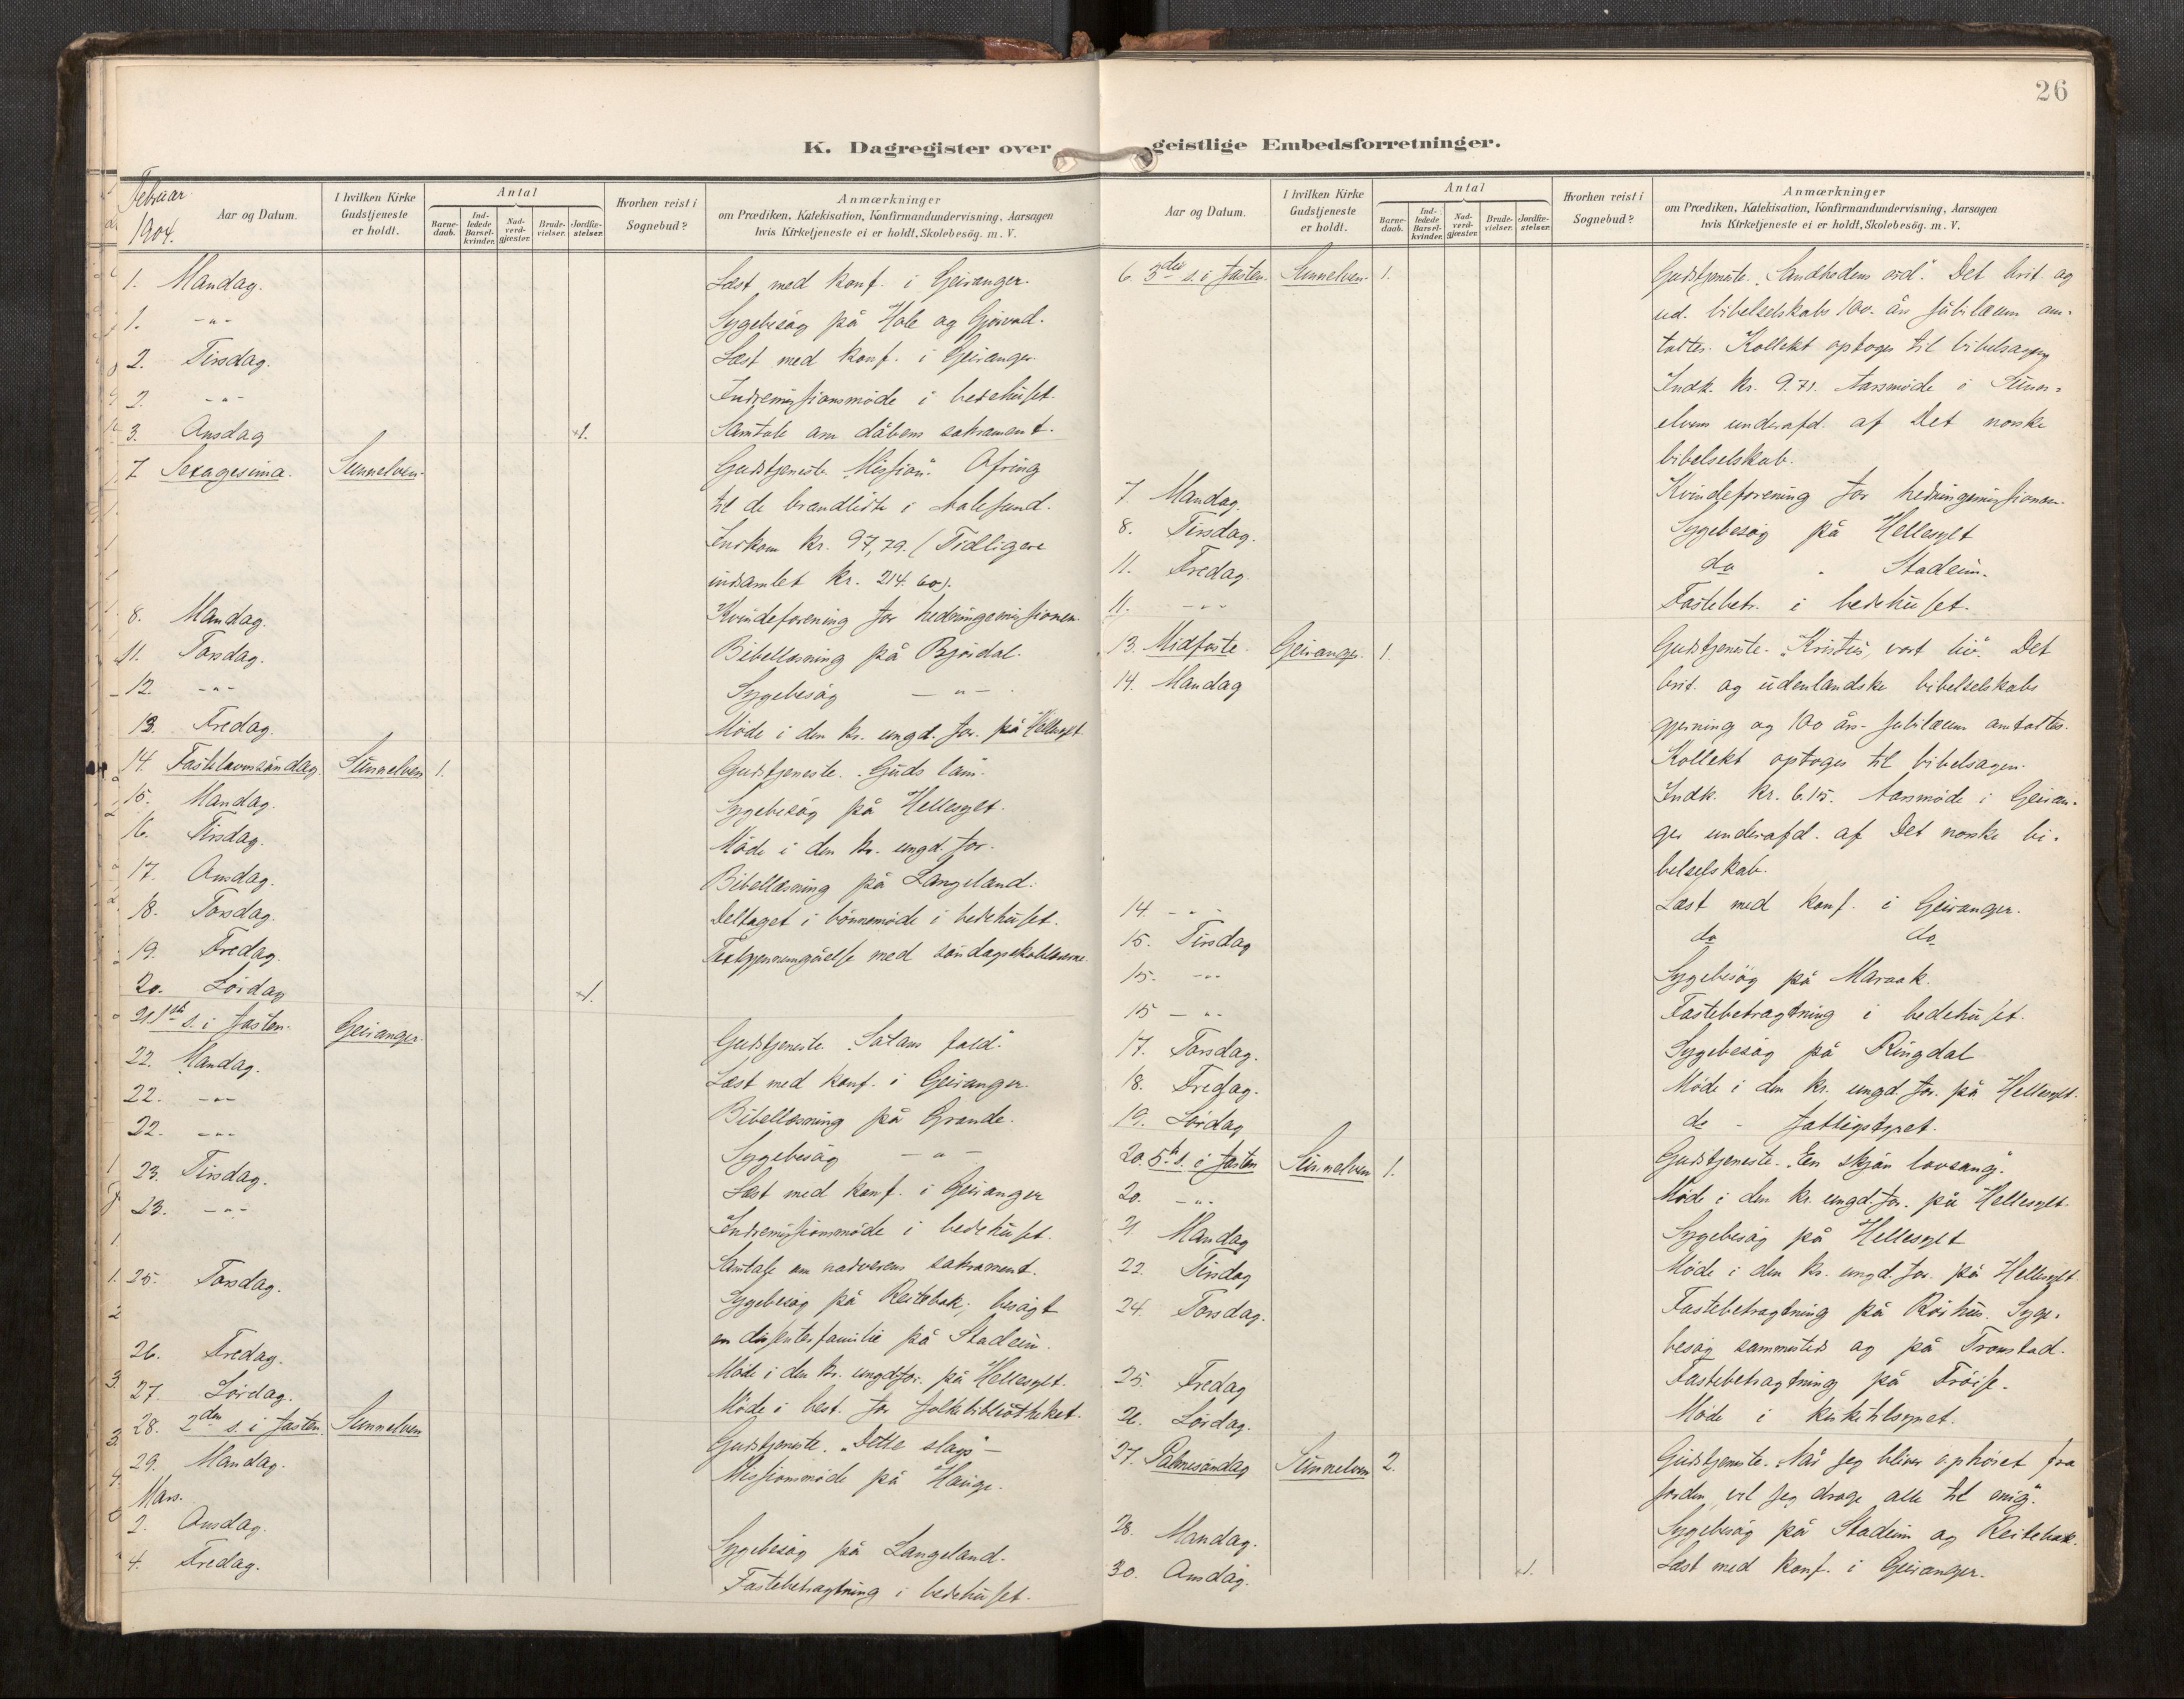 26
K. Dagregister over geistlige Embedsforretninger.
Februar 1904.
Aar og Datum.
I hvilken Kirke Gudstjeneste er holdt.
Antal
Barne-daab.
Ind-ledede Barsel-kvinder.
Nad-verd-gjæster.
Brude-vielser.
Jordfæ-stelser.
Hvorhen reist i Sognebud?
Anmærkninger
om Prædiken, Katekisation, Konfirmandundervisning, Aarsagen
hvis Kirketjeneste ei er holdt, Skolebesøg. m. V.
1. Mandag. Læst med konf. i Geiranger.
1. -"- Sygebesøg på Hole og Gjørvad.
2. Tirsdag. Læst med konf. i Geiranger.
2. -"- Indremissionsmøde i bedehuset.
3. Onsdag 1. Samtale om dåbens sakrament.
7. Sexagesima. Sunnelven. Gudstjeneste. "Mission". Ofring
til de brandlidte i Aalesund.
Indkom kr. 97,79. (Tidligere
indsamlet kr. 214.60).
8. Mandag. Kvindeforening for hedningemissionen.
11. Torsdag. Bibellæsning på Bjørdal.
12. -"- Sygebesøg -"-
13. Fredag. Møde i den kr. ungd. for. på Hellesylt.
14. Fastelavnssøndag. Sunnelven 1. Gudstjeneste. "Guds lam".
15. Mandag. Sygebesøg på Hellesylt.
16. Tirsdag. Møde i den kr. ungd. for.
17. Onsdag. Bibellæsning på Langeland.
18. Torsdag. Deltaget i bønnemøde i bedehuset.
19. Fredag. Textgjennemgåelse med søndagsskolelærerne.
20. Lørdag 1.
21. 1ste s. i fasten. Geiranger. Gudstjeneste "Satans fald".
22. Mandag. Læst med konf. i Geiranger.
22. -"- Bibellæsning på Grande.
22. -"- Sygebesøg -"-
23. Tirsdag. Læst med konf. i Geiranger
23. -"- Indremissionsmøde i bedehuset.
Samtale om nadverens sakrament.
25. Torsdag. Sygebesøg på Reitebak; besøgt
en dissenterfamilie på Stadeim.
26. Fredag. Møde i den kr. ungd.for. på Hellesylt.
27. Lørdag. Møde i best. for folkebibliotheket.
28. 2den s. i fasten. Sunnelven Gudstjeneste. "Dette slags" -
29. Mandag. Missionsmøde på Hauge.
Mars.
2. Onsdag. Sygebesøg på Langeland.
4. Fredag. Fastebetragtning i bedehuset.
Aar og Datum.
I hvilken Kirke Gudstjeneste er holdt.
Antal
Barne-daab.
Ind-ledede Barsel-kvinder.
Nad-verd-gjæster.
Brude-vielser.
Jordfæ-stelser.
Hvorhen reist i Sognebud?
Anmærkninger
om Prædiken, Katekisation, Konfirmandundervisning, Aarsagen
hvis Kirketjeneste ei er holdt, Skolebesøg. m. V.
6. 3die s. i fasten. Sunnelven. 1. Gudstjeneste. "Sandhedens ord". Det brit. og
ud. bibelselskabs 100. års jubilæum om-
taltes. Kollekt optoges til bibelsagen
Indk. kr. 9.71. Aarsmøde i Sunn-
elvens underafd. af Det norske
bibelselskab.
7. Mandag. Kvindeforening for hedningemissionen.
8. Tirsdag. Sygebesøg på Hellesylt
11. Fredag. do " Stadeim.
11. -"- Fastebetr. i bedehuset.
13. Midfaste. Geiranger. 1. Gudstjeneste. "Kristus, vort liv". Det
14. Mandag brit. og udenlandske bibelselskabs
gjerning og 100 års-jubilæum omtaltes.
Kollekt optoges til bibelsagen.
Indk. kr. 6.15. Aarsmøde i Geiran-
ger underafd. af Det norske bi-
belselskab.
14. -"- Læst med konf. i Geiranger.
15. Tirsdag do do
15. -"- Sygebesøg på Maraak.
15 -"- Fastebetragtning i bedehuset.
17. Torsdag. Sygebesøg på Ringdal
18. Fredag. Møde i den kr. ungd. for. på Hellesylt.
19. Lørdag do - fattigstyret.
20. 5te s. i fasten Sunnelven 1. Gudstjeneste. "En skjøn lovsang".
20. -"- Møde i den kr. ungd. for. på Hellesylt.
21 Mandag Sygebesøg på Hellesylt
22. Tirsdag Møde i den kr. ungd. for. på Hellesylt.
24. Torsdag. Fastebetragtning på Røshus. Syge-
besøg sammesteds og på Tronstad.
25. Fredag Fastebetragtning på Frøise.
26. Lørdag. Møde i kirketilsynet.
27. Palmesøndag Sunnelven 2. Gudstjeneste. "Når jeg bliver ophøiet fra
jorden, vil jeg drage alle til mig".
28. Mandag. Sygebesøg på Stadeim og Reitebak.
30. Onsdag. 1. Læst med konf. i Geiranger.